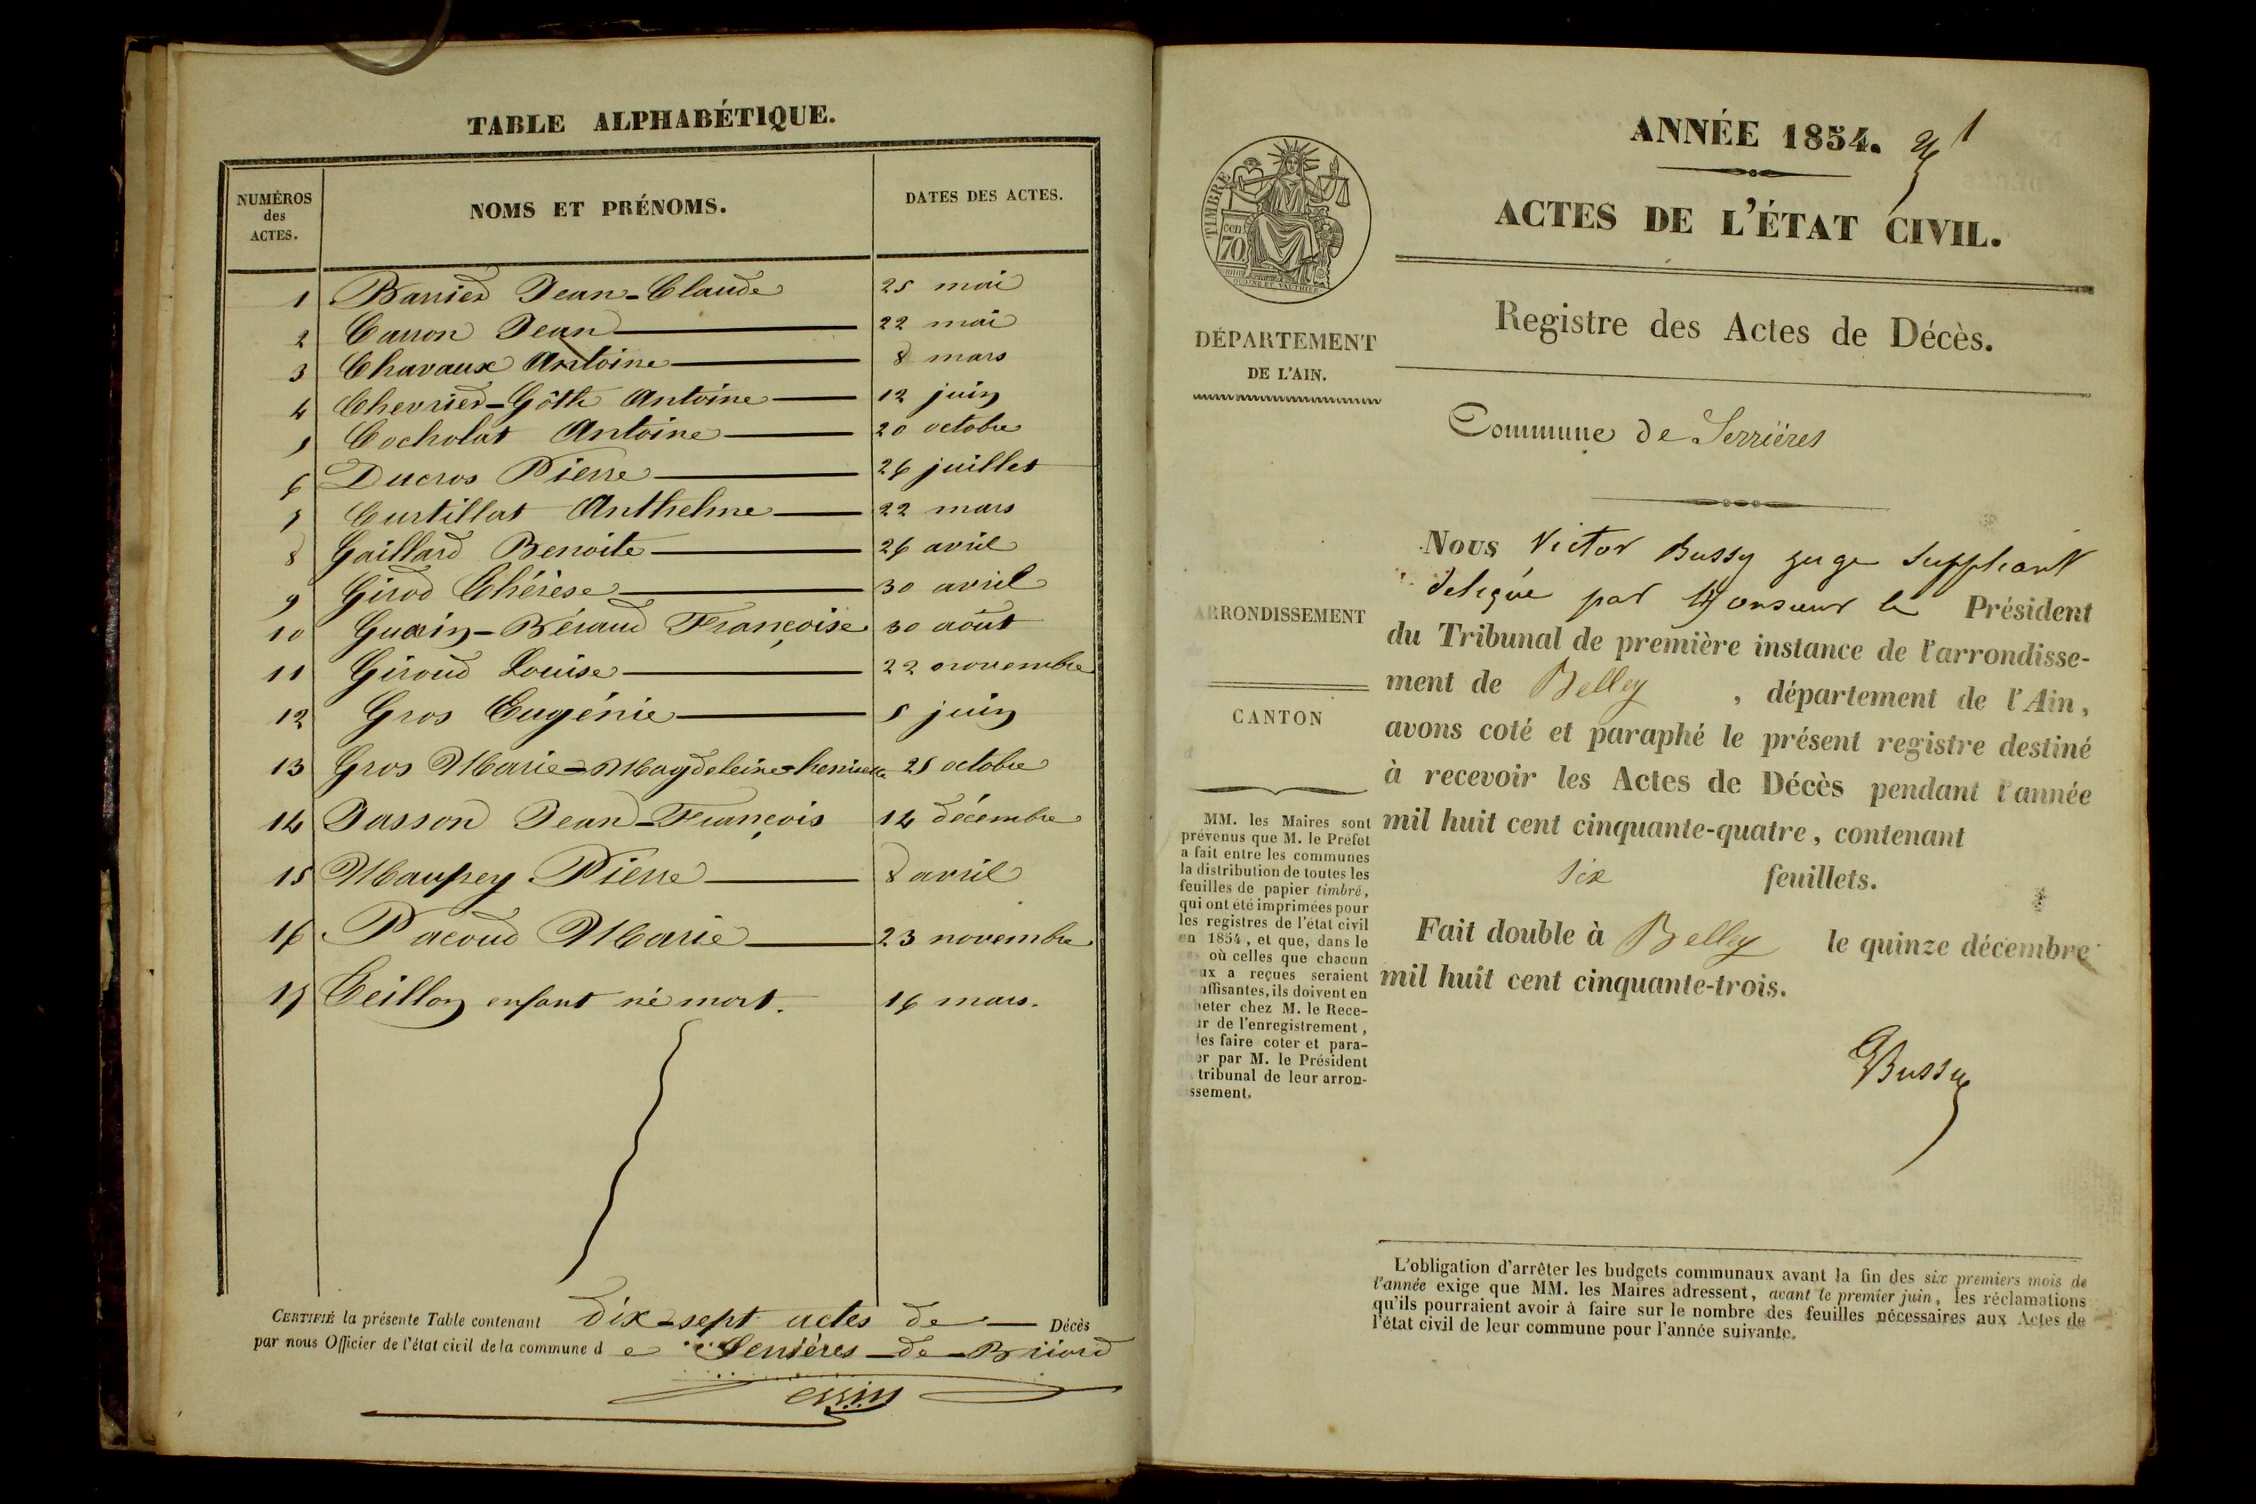 TABLE ALPHABÉTIQUE.
NUMÉROS
des
ACTES.
NOMS ET PRÉNOMS.
DATES DES ACTES.
1 Barrier Jean-Claude 25 mai
2 Carron Jean 22 mai
3 Chavaux Antoine 8 mars
4 Chevrier-Gôth Antoine 12 juin
5 Cocholat Antoine 20 octobre
6 Ducros Pierre 26 juillet
7 Curtillat Anthelme 22 mars
8 Gaillard Benoite 26 avril
9 Girod Thérèse 30 avril
10 Guérin-Béraud Françoise 30 août
11 Giroud Louise 22 novembre
12 Gros Eugénie 5 juin
13 Gros Marie-Magdeleine 25 octobre
14 Jasson Jean-François 14 décembre
15 Maupey Pierre 8 avril
16 Pacoud Marie 23 novembre
17 Teillon enfant né mort. 16 mars.
CERTIFIÉ la présente Table contenant dix-sept actes de Décès
par nous Officier de l'état civil de la commune de Serrières-de-Briord
ANNÉE 1854.
1
ACTES DE L'ÉTAT CIVIL.
TIMBRE
cen
70
DÉPARTEMENT
DE L'AIN.
Registre des Actes de Décès.
Commune de Serrières
Nous Victor Bussy juge Suppléant
délégué par Monsieur le Président
du Tribunal de première instance de l'arrondisse-
ment de Belley , département de l'Ain,
avons coté et paraphé le présent registre destiné
à recevoir les Actes de Décès pendant l'année
mil huit cent cinquante-quatre, contenant
six feuillets.
Fait double à Belley le quinze décembre
mil huit cent cinquante-trois.
Bussy
ARRONDISSEMENT
CANTON
MM. les Maires sont
prévenus que M. le Préfet
a fait entre les communes
la distribution de toutes les
feuilles de papier timbré,
qui ont été imprimées pour
les registres de l'état civil
en 1854, et que, dans le
où celles que chacun
eux a reçues seraient
uffisantes, ils doivent en
heter chez M. le Rece-
ur de l'enregistrement,
les faire coter et para-
er par M. le Président
tribunal de leur arron-
ssement.
L'obligation d'arrêter les budgets communaux avant la fin des six premiers mois de
l'année exige que MM. les Maires adressent, avant le premier juin, les réclamations
qu'ils pourraient avoir à faire sur le nombre des feuilles nécessaires aux Actes de
l'état civil de leur commune pour l'année suivante.